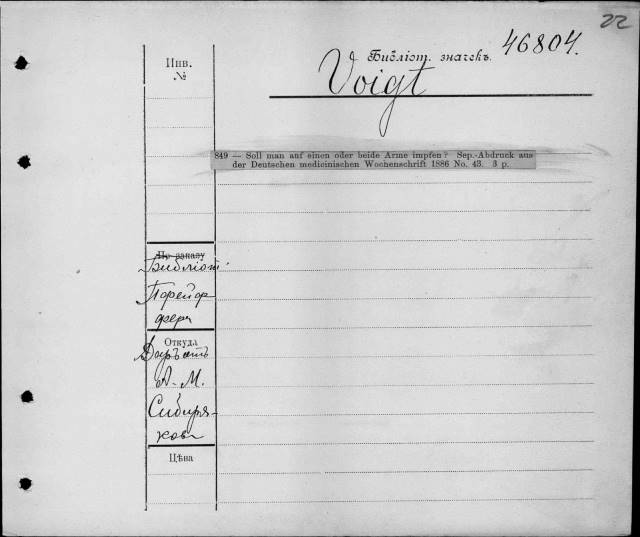 22
46804.
Библіот. значекъ.
Voigt
Инв.
№
849 — Soll man auf einen oder beide Arme impfen? Sep.-Abdruck aus
der Deutschen medicinischen Wochenschrift 1886 No. 43. 3 p.
По заказу
Библіот.
Пфейф
фера
Откуда
Даръ отъ
А. М.
Сибиря-
кова
Цѣна